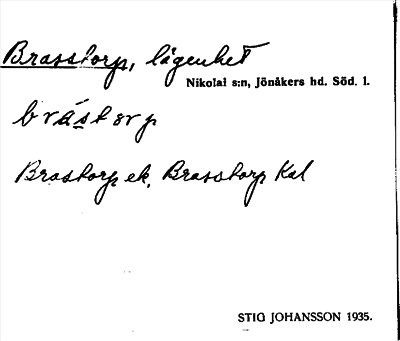 Brasstorp, lägenhet
Nikolai s:n, Jönåkers hd. Söd. l.
brás̲torp
Brastorp ek, Brasstorp Kal
STIG JOHANSSON 1935.